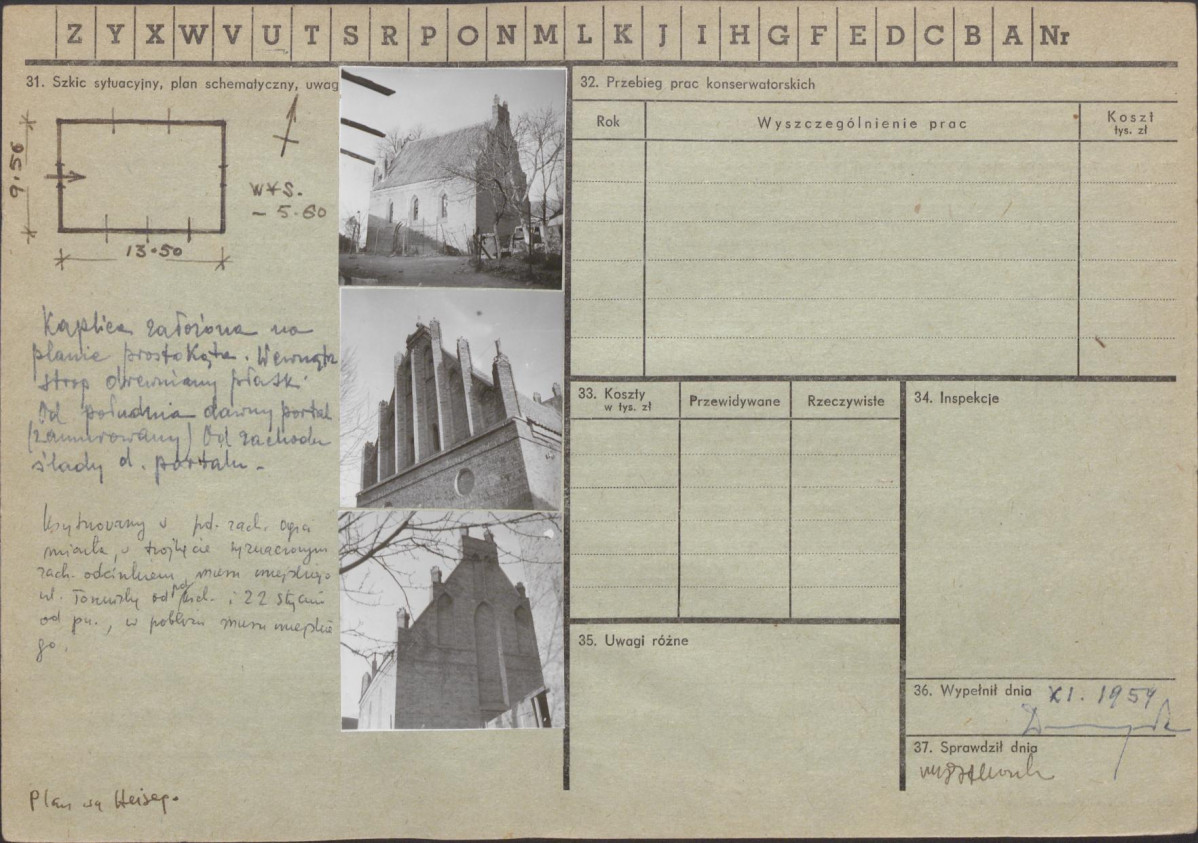 Z Y X W V U T S R P O N M L K J I H G F E D C B A Nr
31. Szkic sytuacyjny, plan schematyczny, uwag
9.56
13.50
WYS.
~ 5.60
Kaplica założona na
planie prostokąta. Wewnątrz
strop drewniany płaski
Od południa dawny portal
(zamurowany) Od zachodu
ślady d. portalu.
Usytuowany w pd. zach. części
miasta, w trójkącie wyznaczonym
zach. odcinkiem muru miejskiego
ul. Toruńską od pd. i 22 Stycznia
od pn., w pobliżu muru miejskie
go.
Plan wg Heisego
32. Przebieg prac konserwatorskich
Rok
Wyszczególnienie prac
Koszt
tys. zł
33. Koszty
w tys. zł
Przewidywane
Rzeczywiste
34. Inspekcje
35. Uwagi różne
36. Wypełnił dnia XI. 1959
37. Sprawdził dnia